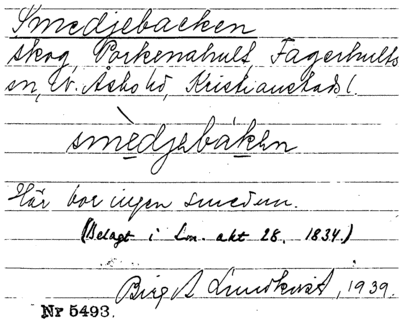 Smedjebacken
skog, Porkenahult, Fagerhults
sn, V. Åsbo hd, Kristianstads l.
smèdjebákən
Här bor ingen smed nu.
(Belagt i Lm. akt 28. 1834.)
Birgit Lundkvist, 1939.
Nr 5493.